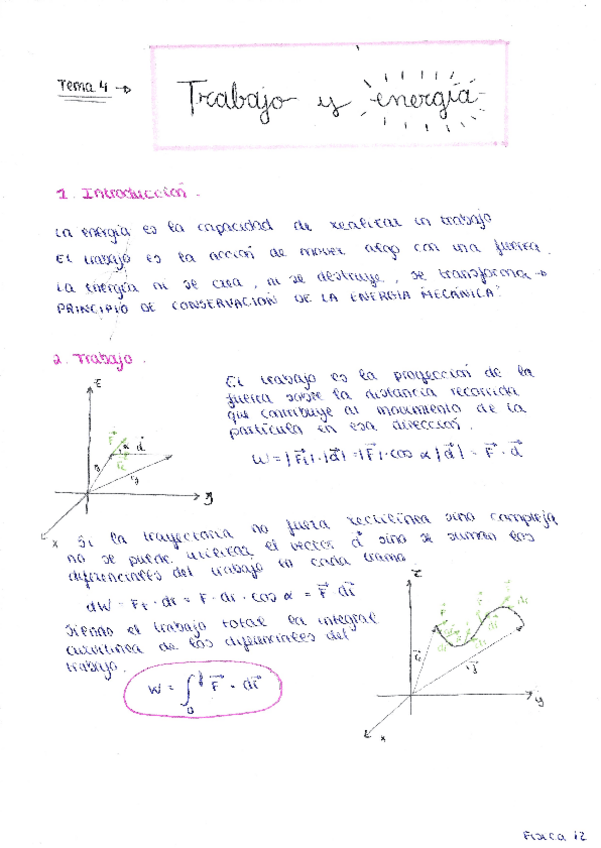 Tema 4 →
Trabajo y energía
1. Introducción.
La energía es la capacidad de realizar un trabajo
El trabajo es la acción de mover algo con una fuerza.
La energía ni se crea, ni se destruye, se transforma →
PRINCIPIO DE CONSERVACIÓN DE LA ENERGÍA MECÁNICA.
2. Trabajo.
El trabajo es la proyección de la
fuerza sobre la distancia recorrida
que contribuye al movimiento de la
partícula en esa dirección.
W = |Ft|·|d| = |F|·cos α |d| = F · d
z
F
α
d
y
x
Si la trayectoria no fuera rectilínea sino compleja
no se puede utilizar el vector d sino se suman los
diferenciales del trabajo en cada tramo
dW = Ft · dr = F · dr · cos α = F dr
Siendo el trabajo total la integral
curvilínea de los diferenciales del
trabajo.
W = ∫ F · dr
z
y
x
Física 12